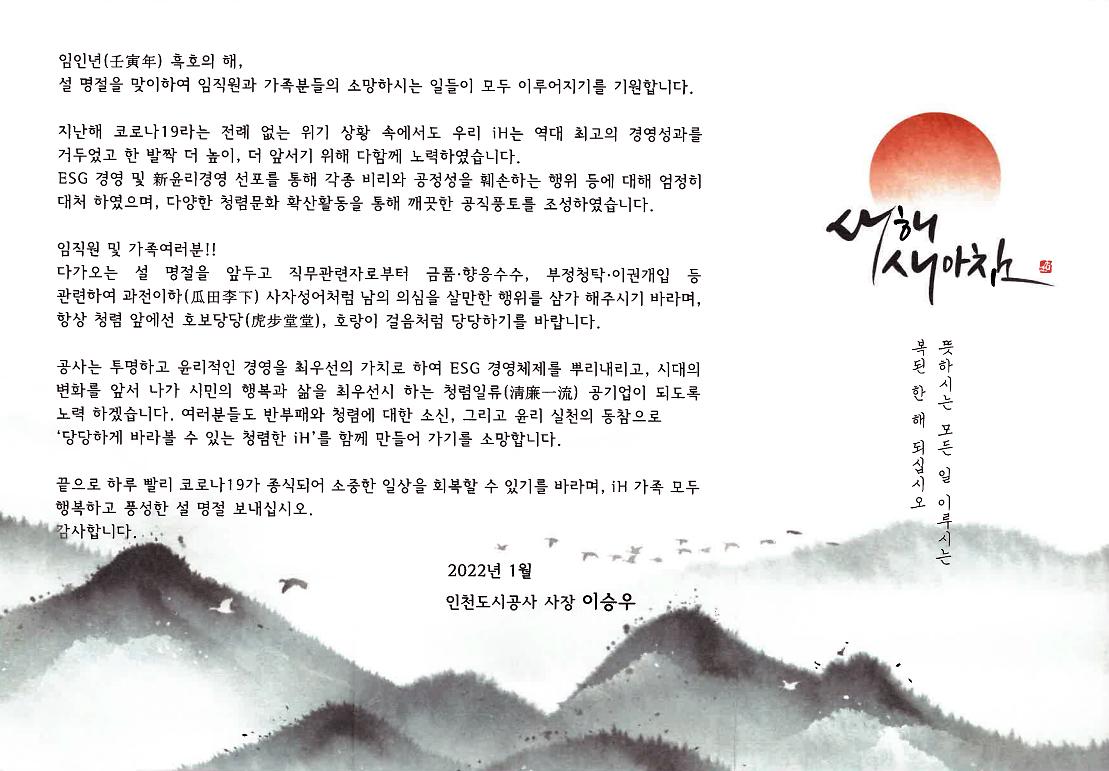 임인년(壬寅年) 흑호의 해,
설 명절을 맞이하여 임직원과 가족분들의 소망하시는 일들이 모두 이루어지기를 기원합니다.
지난해 코로나19라는 전례 없는 위기 상황 속에서도 우리 iH는 역대 최고의 경영성과를
거두었고 한 발짝 더 높이, 더 앞서기 위해 다함께 노력하였습니다.
ESG 경영 및 新윤리경영 선포를 통해 각종 비리와 공정성을 훼손하는 행위 등에 대해 엄정히
대처 하였으며, 다양한 청렴문화 확산활동을 통해 깨끗한 공직풍토를 조성하였습니다.
임직원 및 가족여러분!!
다가오는 설 명절을 앞두고 직무관련자로부터 금품·향응수수, 부정청탁·이권개입 등
관련하여 과전이하(瓜田李下) 사자성어처럼 남의 의심을 살만한 행위를 삼가 해주시기 바라며,
항상 청렴 앞에선 호보당당(虎步堂堂), 호랑이 걸음처럼 당당하기를 바랍니다.
공사는 투명하고 윤리적인 경영을 최우선의 가치로 하여 ESG 경영체제를 뿌리내리고, 시대의
변화를 앞서 나가 시민의 행복과 삶을 최우선시 하는 청렴일류(淸廉一流) 공기업이 되도록
노력 하겠습니다. 여러분들도 반부패와 청렴에 대한 소신, 그리고 윤리 실천의 동참으로
‘당당하게 바라볼 수 있는 청렴한 iH’를 함께 만들어 가기를 소망합니다.
끝으로 하루 빨리 코로나19가 종식되어 소중한 일상을 회복할 수 있기를 바라며, iH 가족 모두
행복하고 풍성한 설 명절 보내십시오.
감사합니다.
2022년 1월
인천도시공사 사장 이승우
새해
새아침
뜻하시는 모든 일 이루시는
복된 한 해 되십시오